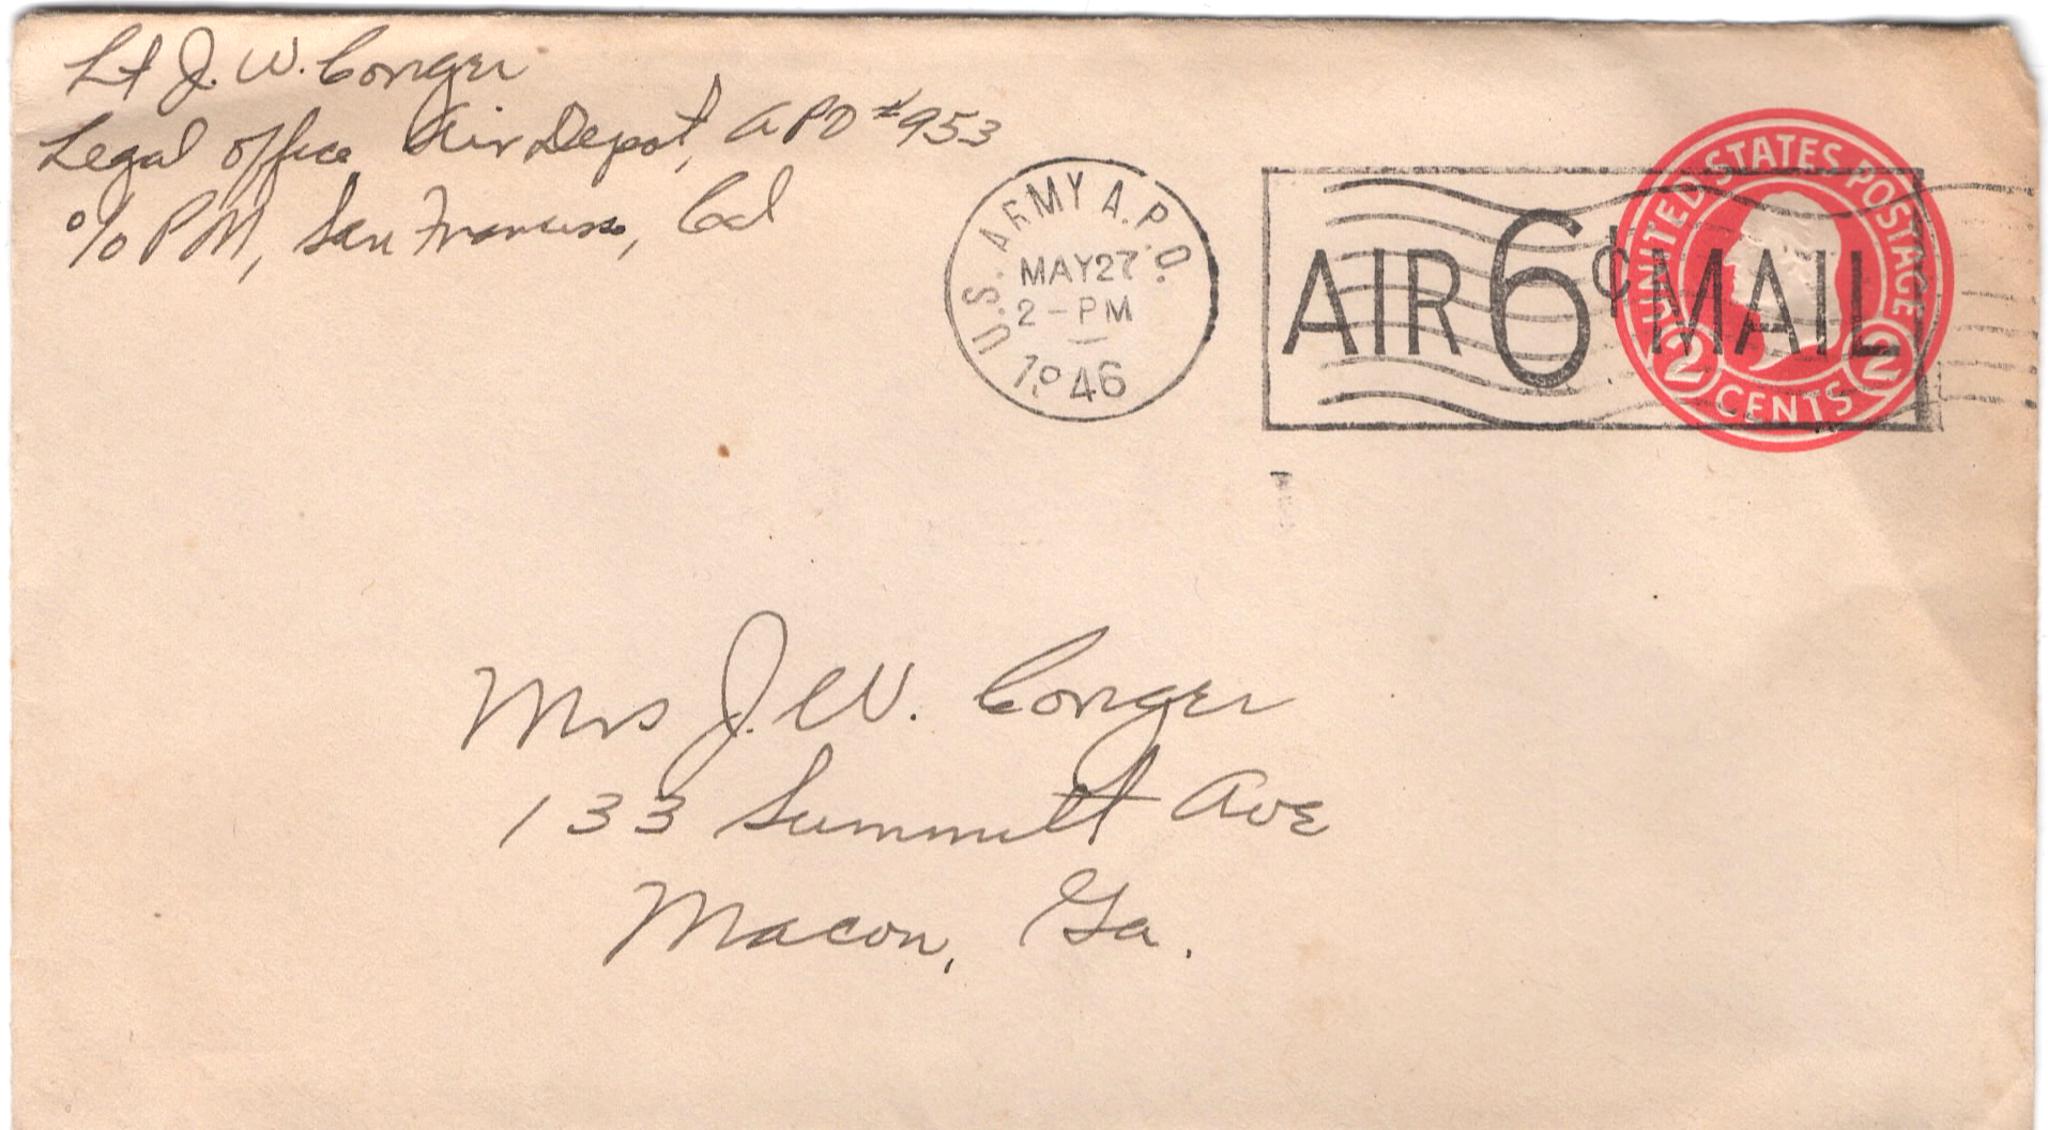 Lt J. W. Conger
Legal Office Air Depot, APO #953
c/o PM, San Francisco, Cal
U.S. ARMY A.P.O.
MAY 27
2-PM
1946
AIR 6¢ MAIL
UNITED STATES POSTAGE
2 CENTS 2
Mrs J. W. Conger
133 Summitt Ave
Macon, Ga.